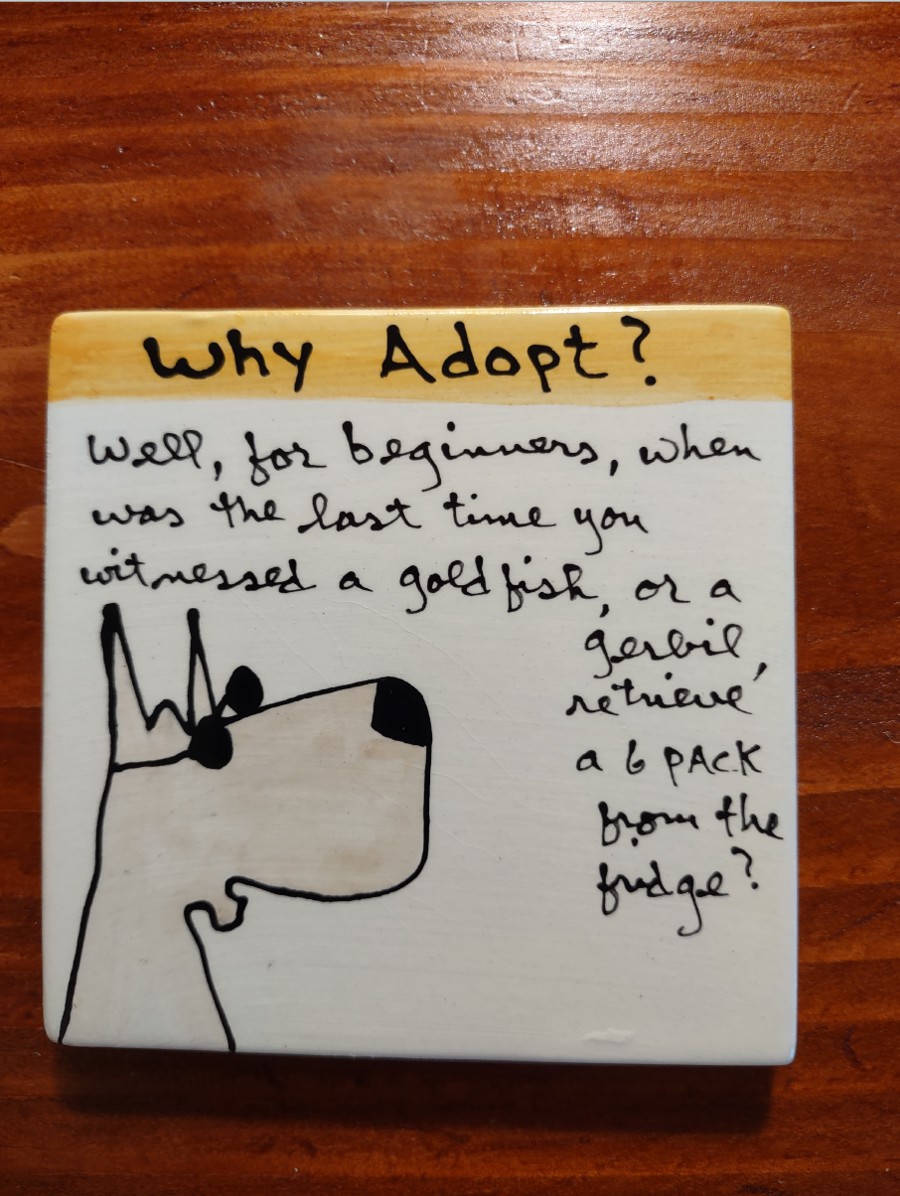 Why Adopt?
Well, for beginners, when
was the last time you
witnessed a goldfish, or a
gerbil,
retrieve
a 6 PACK
from the
fridge?